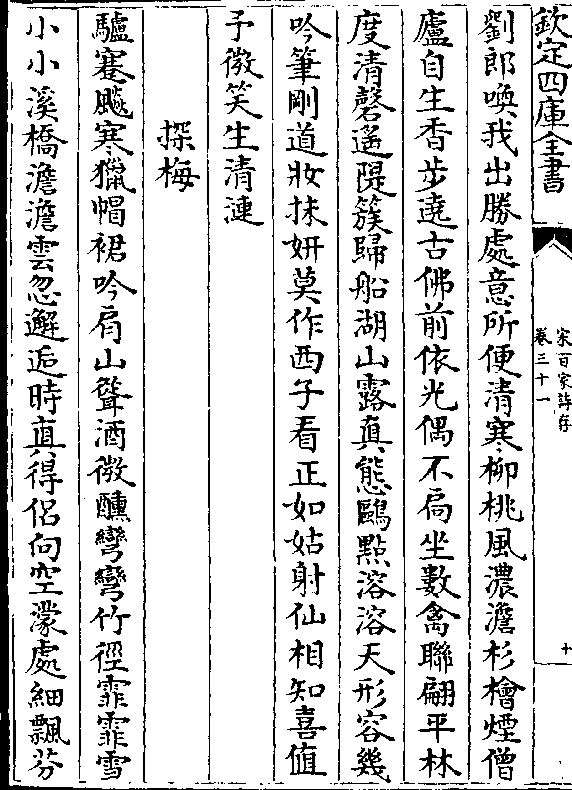 欽定四庫全書
宋百家詩存
卷三十一
十
劉郎喚我出勝處意所便清寒柳桃風濃澹杉檜煙僧
廬自生香步遶古佛前依光偶不扃坐數禽聯翩平林
度清磬遥隄簇歸船湖山露真態鷗點溶溶天形容幾
吟筆剛道妝抹妍莫作西子看正如姑射仙相知喜值
予微笑生清漣
探梅
驢蹇飈寒獵帽裙吟肩山聳酒微醺彎彎竹徑霏霏雪
小小溪橋澹澹雲忽邂逅時真得侣向空濛處細飄芬